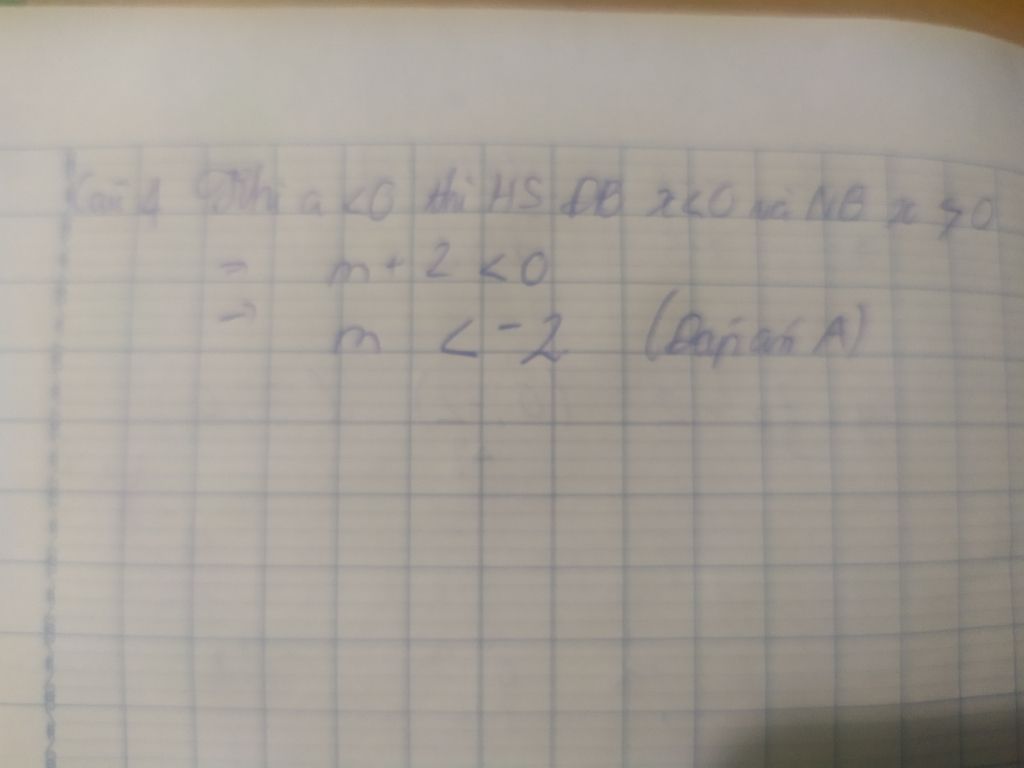 Câu 1 Khi a < 0 thì HS ĐB x < 0 và NB x > 0
= m + 2 < 0
→ m < -2 (Đáp án A)